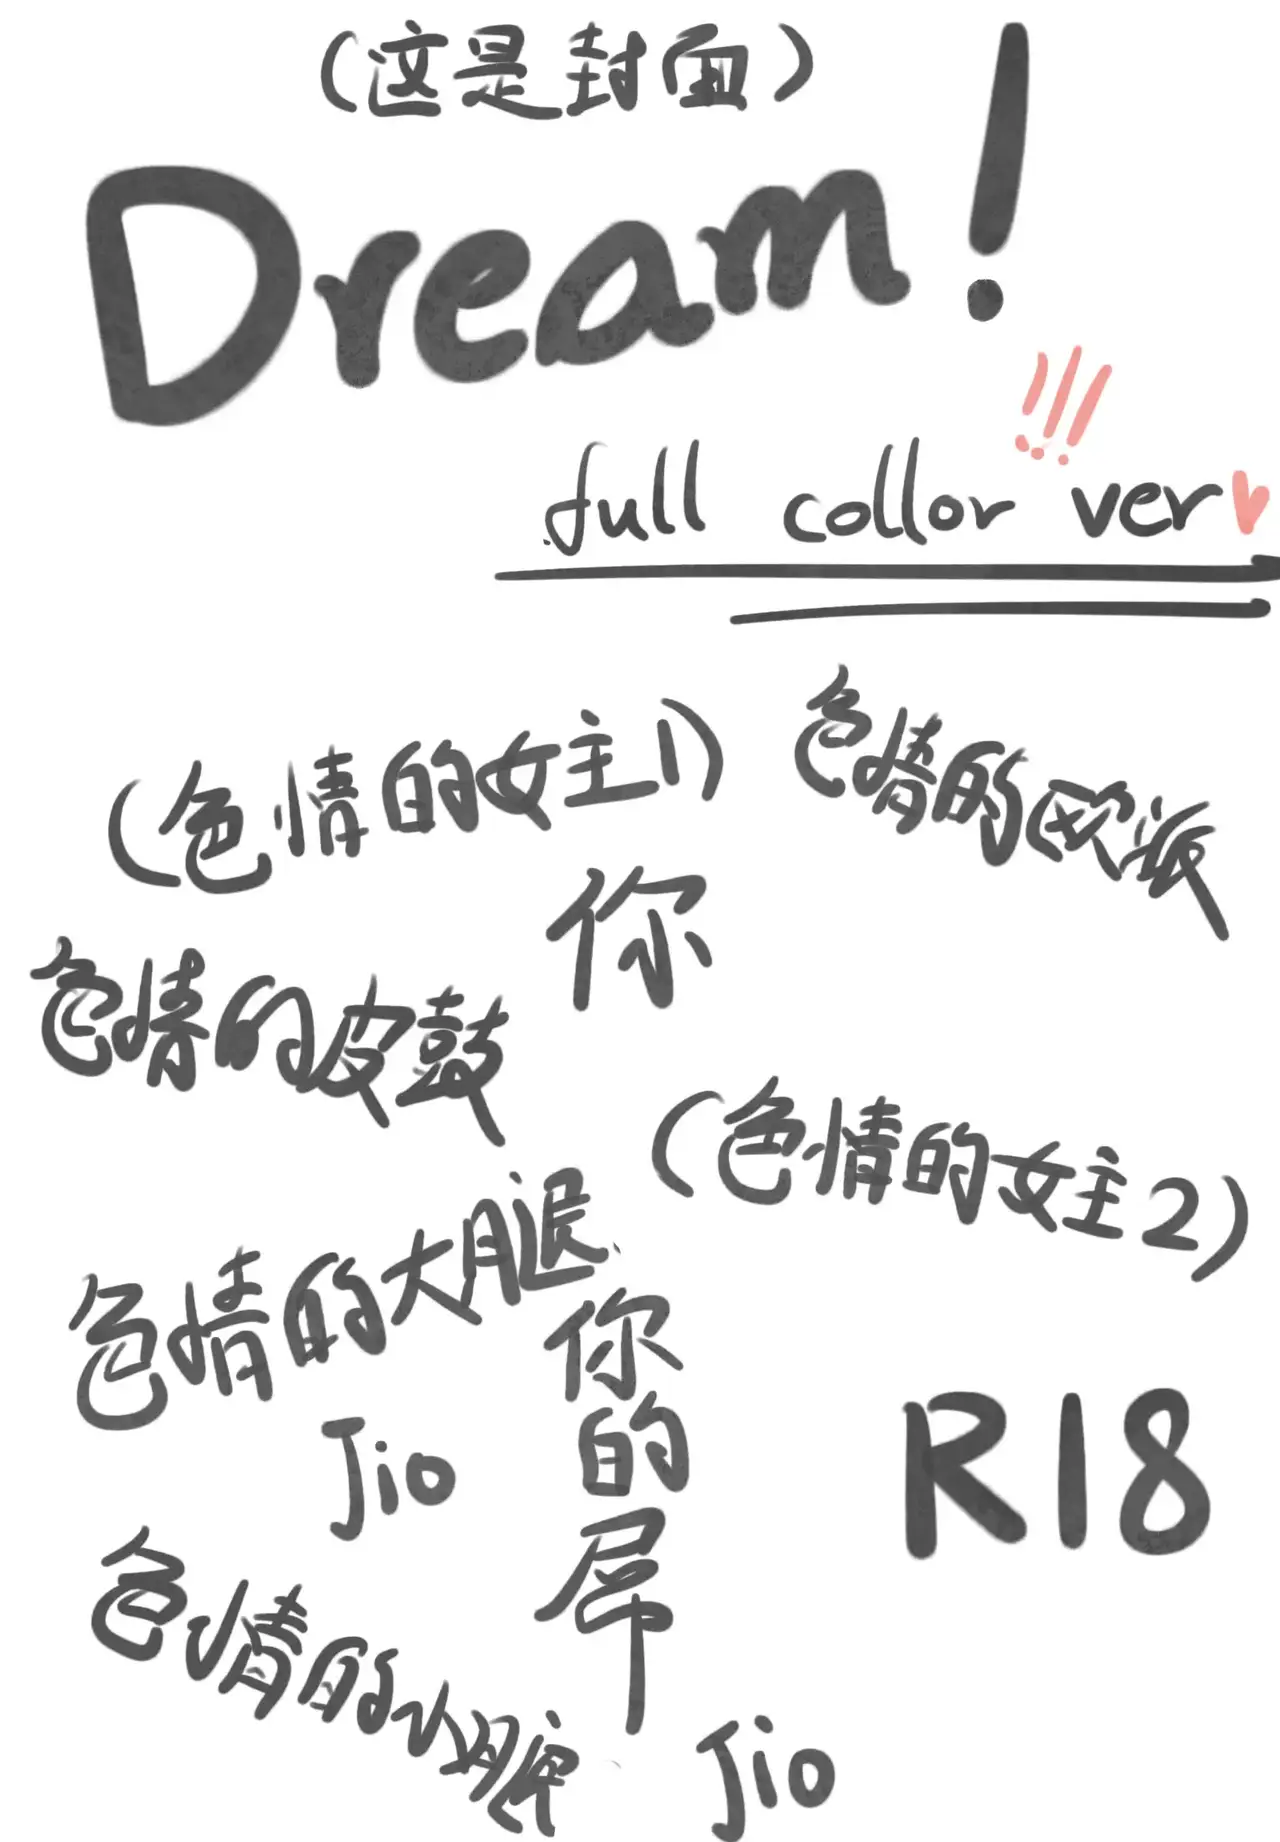 (这是封面)
Dream!
!!!
full collor ver
(色情的女主1)
色情的欧派
你
色情的皮鼓
(色情的女主2)
色情的大腿
你的屌
Jio
R18
色情的小腿
Jio